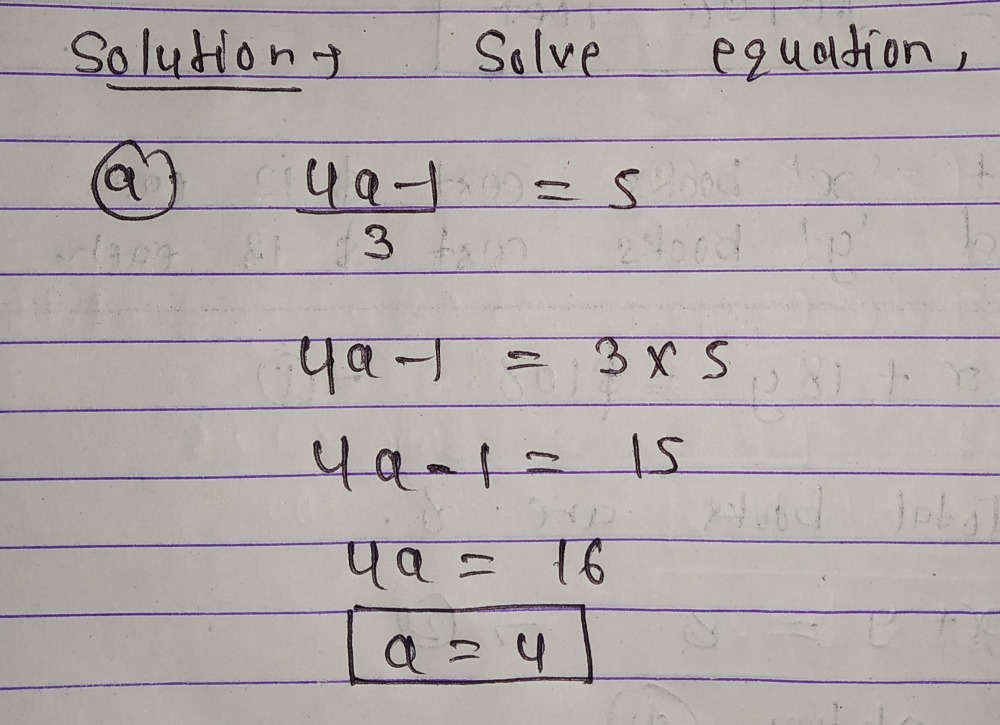 Solution → Solve equation,
(a) 4a - 1 = 5
3
4a - 1 = 3 x 5
4a - 1 = 15
4a = 16
a = 4